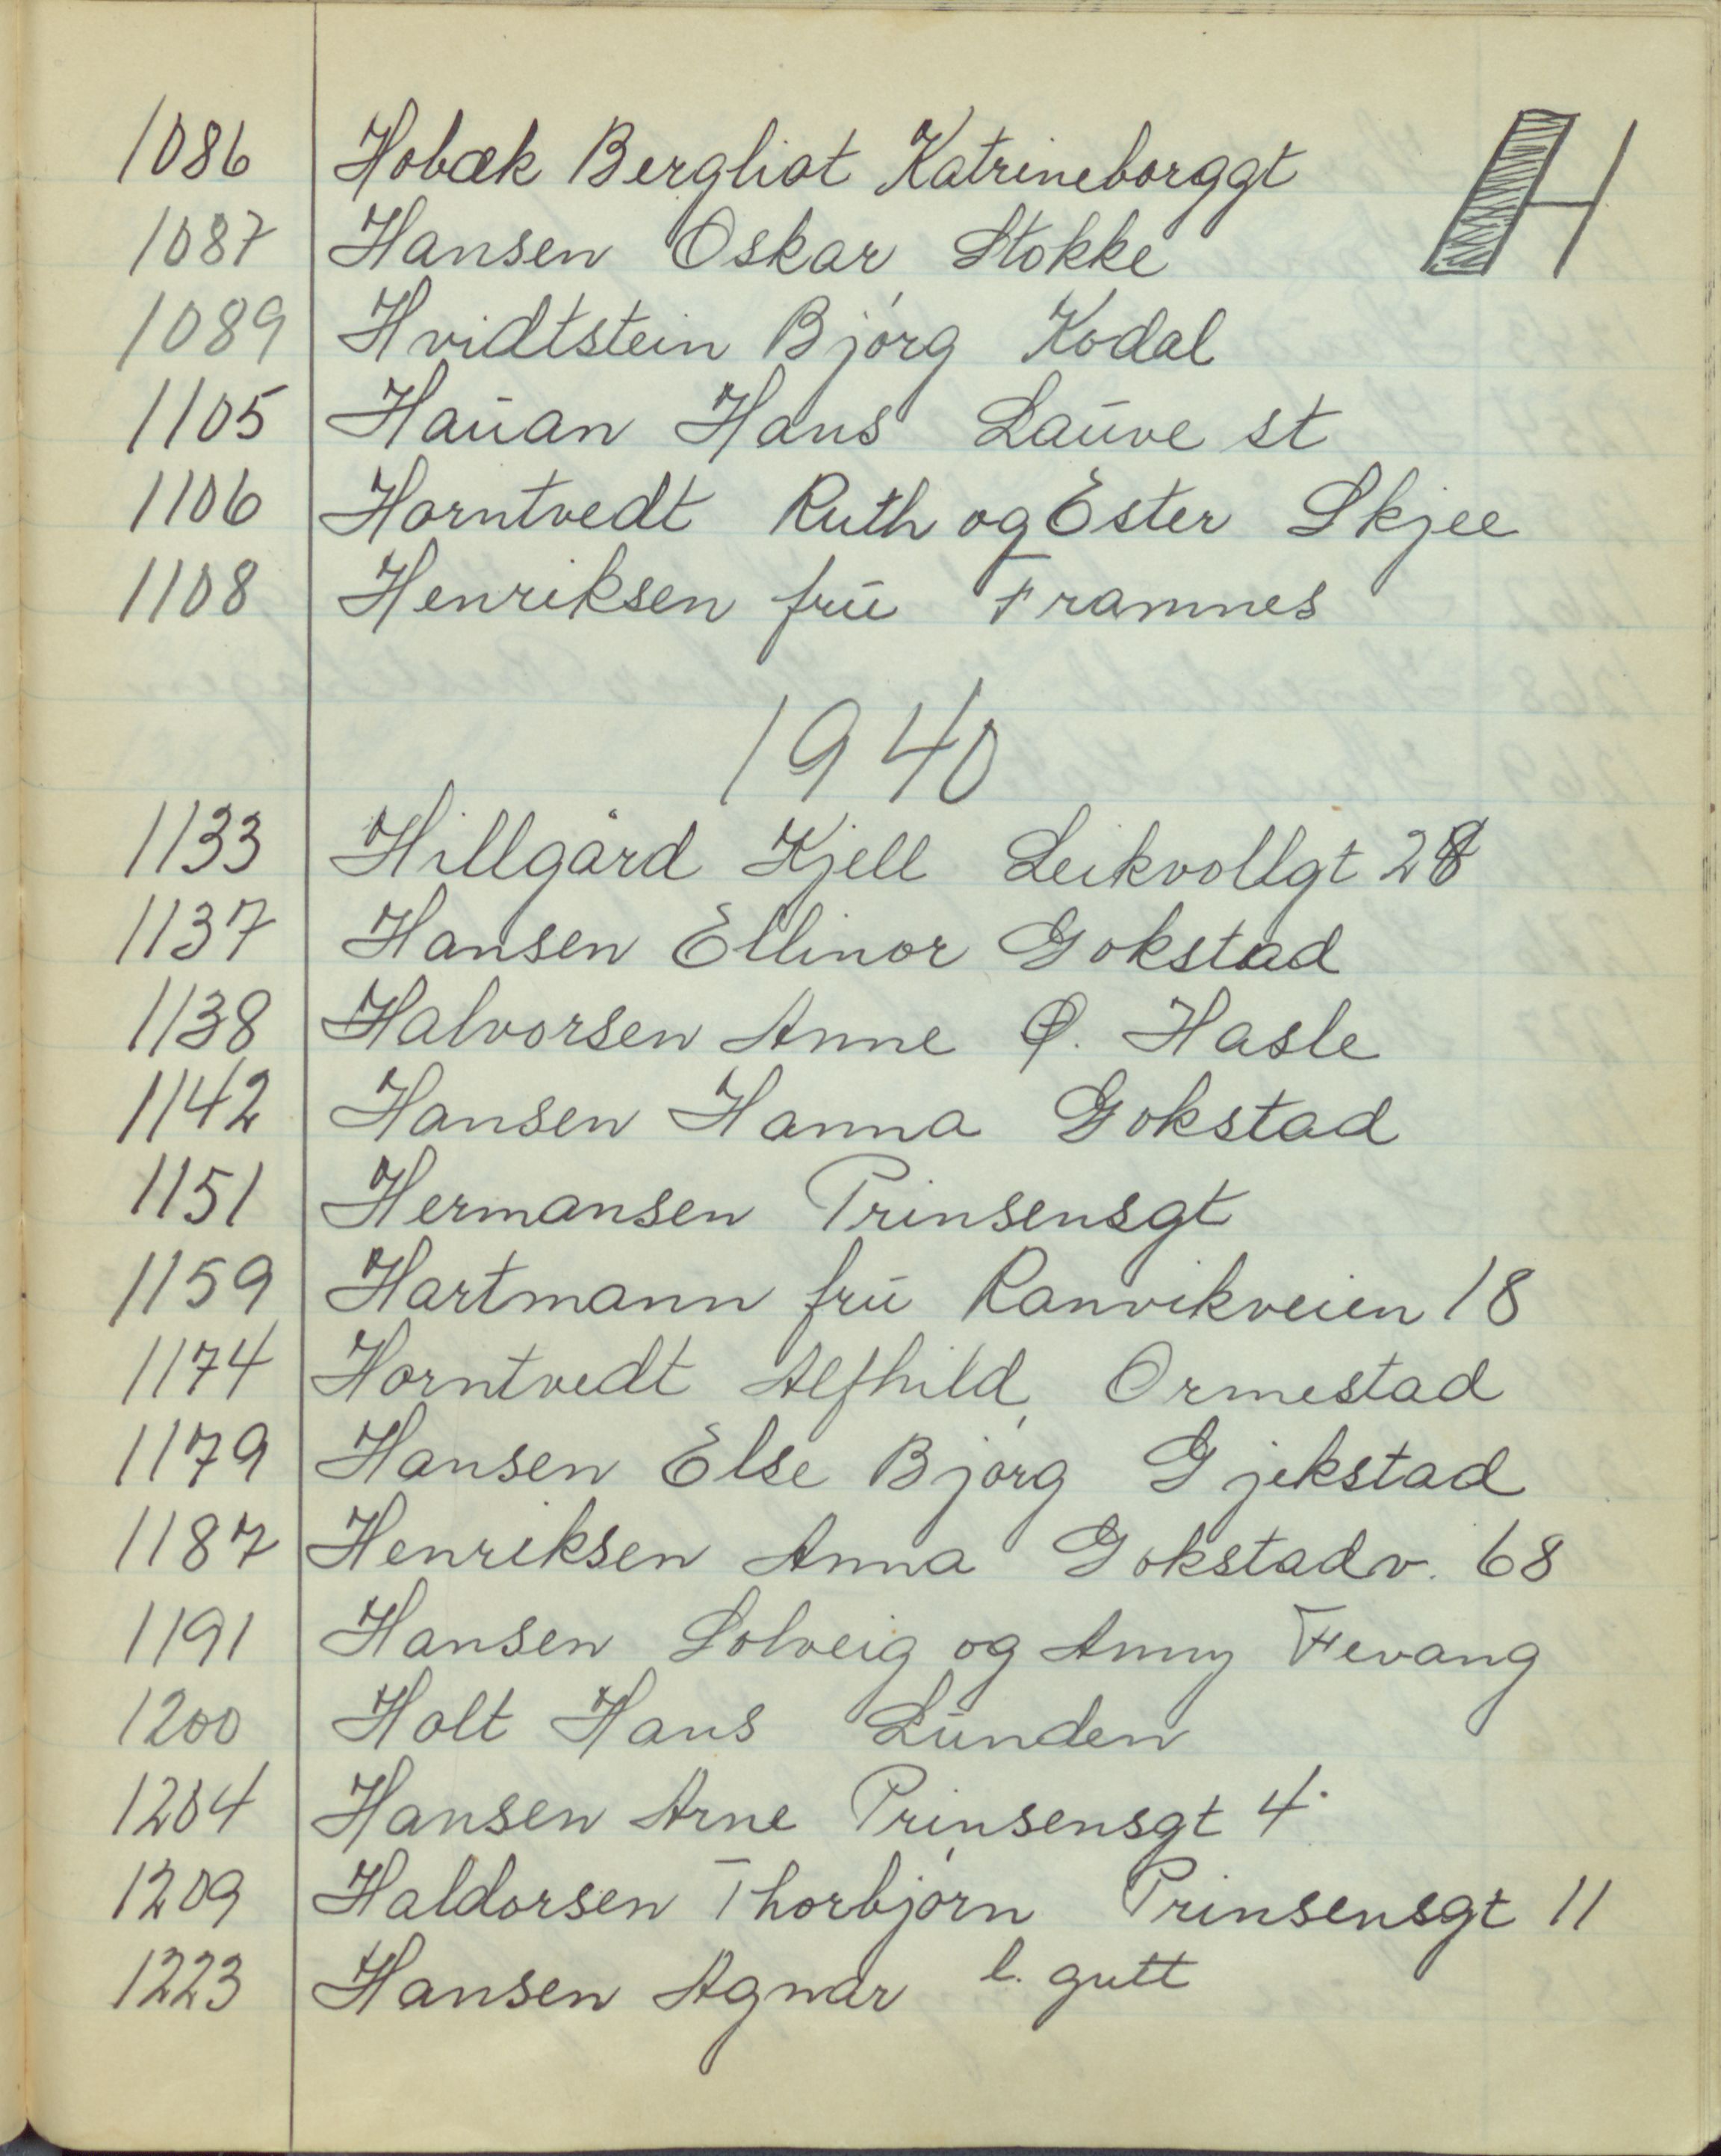 H
1086 Hobæk Bergliot Katrineborggt
1087 Hansen Oskar Stokke
1089 Hvidtstein Bjørg Kodal
1105 Hauan Hans Lauve st
1106 Horntvedt Ruth og Ester Skjee
1108 Henriksen fru Framnes
1940
1133 Hillgård Kjell Leikvollgt 28
1137 Hansen Ellinor Gokstad
1138 Halvorsen Anne Ø. Hasle
1142 Hansen Hanna Gokstad
1151 Hermansen Prinsensgt
1159 Hartmann fru Ranvikveien 18
1174 Horntvedt Alfhild Ormestad
1179 Hansen Else Bjørg Gjekstad
1187 Henriksen Anna Gokstadv. 68
1191 Hansen Solveig og Anny Fevang
1200 Holt Hans Lunden
1204 Hansen Arne Prinsensgt 4
1209 Haldorsen Thorbjørn Prinsensgt 11
1223 Hansen Agnar l. gutt